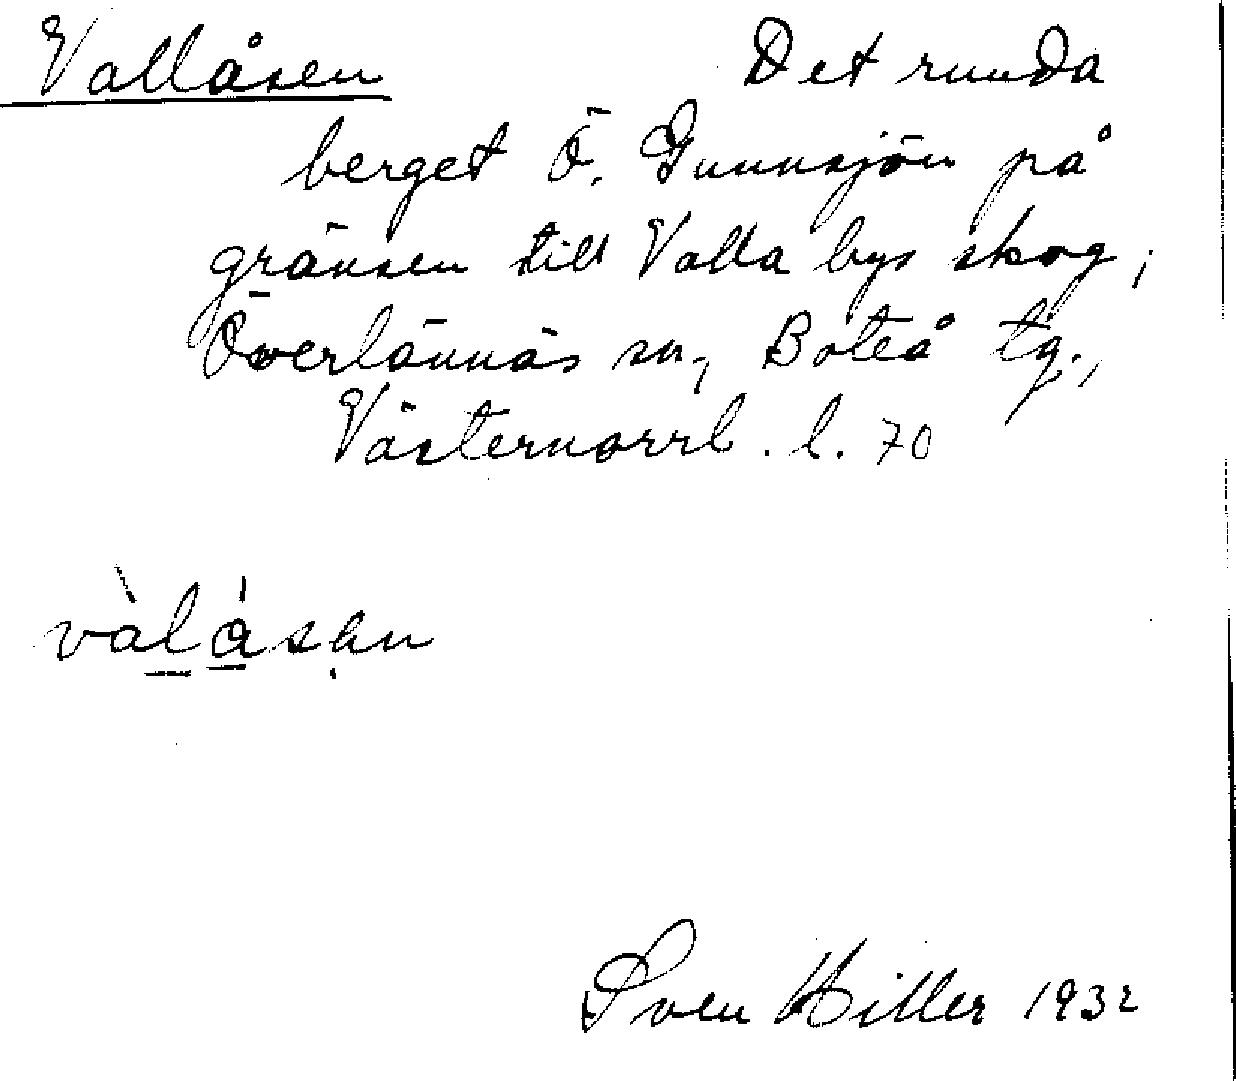 Vallåsen Det runda
berget Ö. Gunnsjön på
gränsen till Valla bys skog,
Överlännäs sn, Boteå tg.,
Västernorrl. l. 70
vàlásən
Sven Hiller 1932